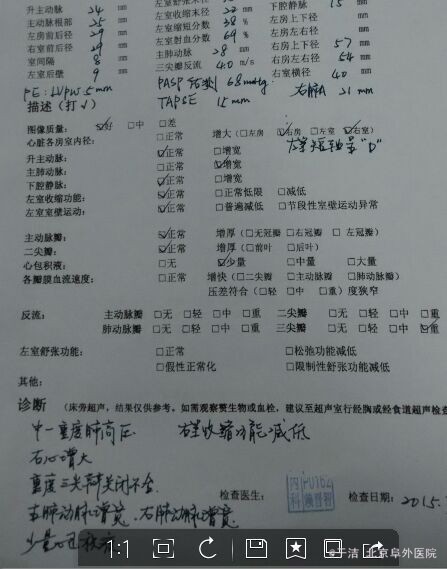 升主动脉 24 mm 左室收缩末径 22 mm 下腔静脉 15 mm
主动脉根部 25 mm 左室缩短分数 38 % 左房上下径 mm
左房前后径 29 mm 左室射血分数 69 % 左房左右径 mm
右室前后径 29 mm 主肺动脉 28 mm 右房上下径 57 mm
室间隔 8 mm 三尖瓣反流 4.0 m/s 右房左右径 54 mm
左室后壁 9 mm PASP 估测 68 mmHg 右室横径 40 mm
PE: LVPW 5mm TAPSE 15mm 右肺A 21mm
描述(打√)
图像质量: ☑好 □中 □差
心脏各房室内径: □正常 增大(□左房 ☑右房 □左室 ☑右室)
左室短轴呈"D"
升主动脉: ☑正常 □增宽
主肺动脉: □正常 ☑增宽
下腔静脉: ☑正常 □增宽
左室收缩功能: ☑正常 □正常低限 □减低
左室室壁运动: ☑正常 □普遍减低 □节段性室壁运动异常
主动脉瓣: ☑正常 增厚(□无冠瓣 □右冠瓣 □左冠瓣)
二尖瓣: ☑正常 增厚(□前叶 □后叶)
心包积液: □无 ☑少量 □中量 □大量
各瓣膜血流速度: □正常 增快(□二尖瓣 □主动脉瓣 □肺动脉瓣)
压差符合(□轻 □中 □重)度狭窄
反流: 主动脉瓣 □无 □轻 □中 □重 二尖瓣 □无 □轻 □中 □重
肺动脉瓣 □无 □轻 □中 □重 三尖瓣 □无 □轻 □中 ☑重
左室舒张功能: □正常 □松弛功能减低
□假性正常化 □限制性舒张功能减低
其他:
诊断 (床旁超声,结果仅供参考,如需观察赘生物或血栓,建议至超声室行经胸或经食道超声检查
中-重度肺高压 右室收缩功能减低
右心增大
重度三尖瓣关闭不全
主肺动脉增宽、右肺动脉增宽
少量心包积液
检查医生: 内科 检查日期: 2015.
1:1
于洁 北京阜外医院